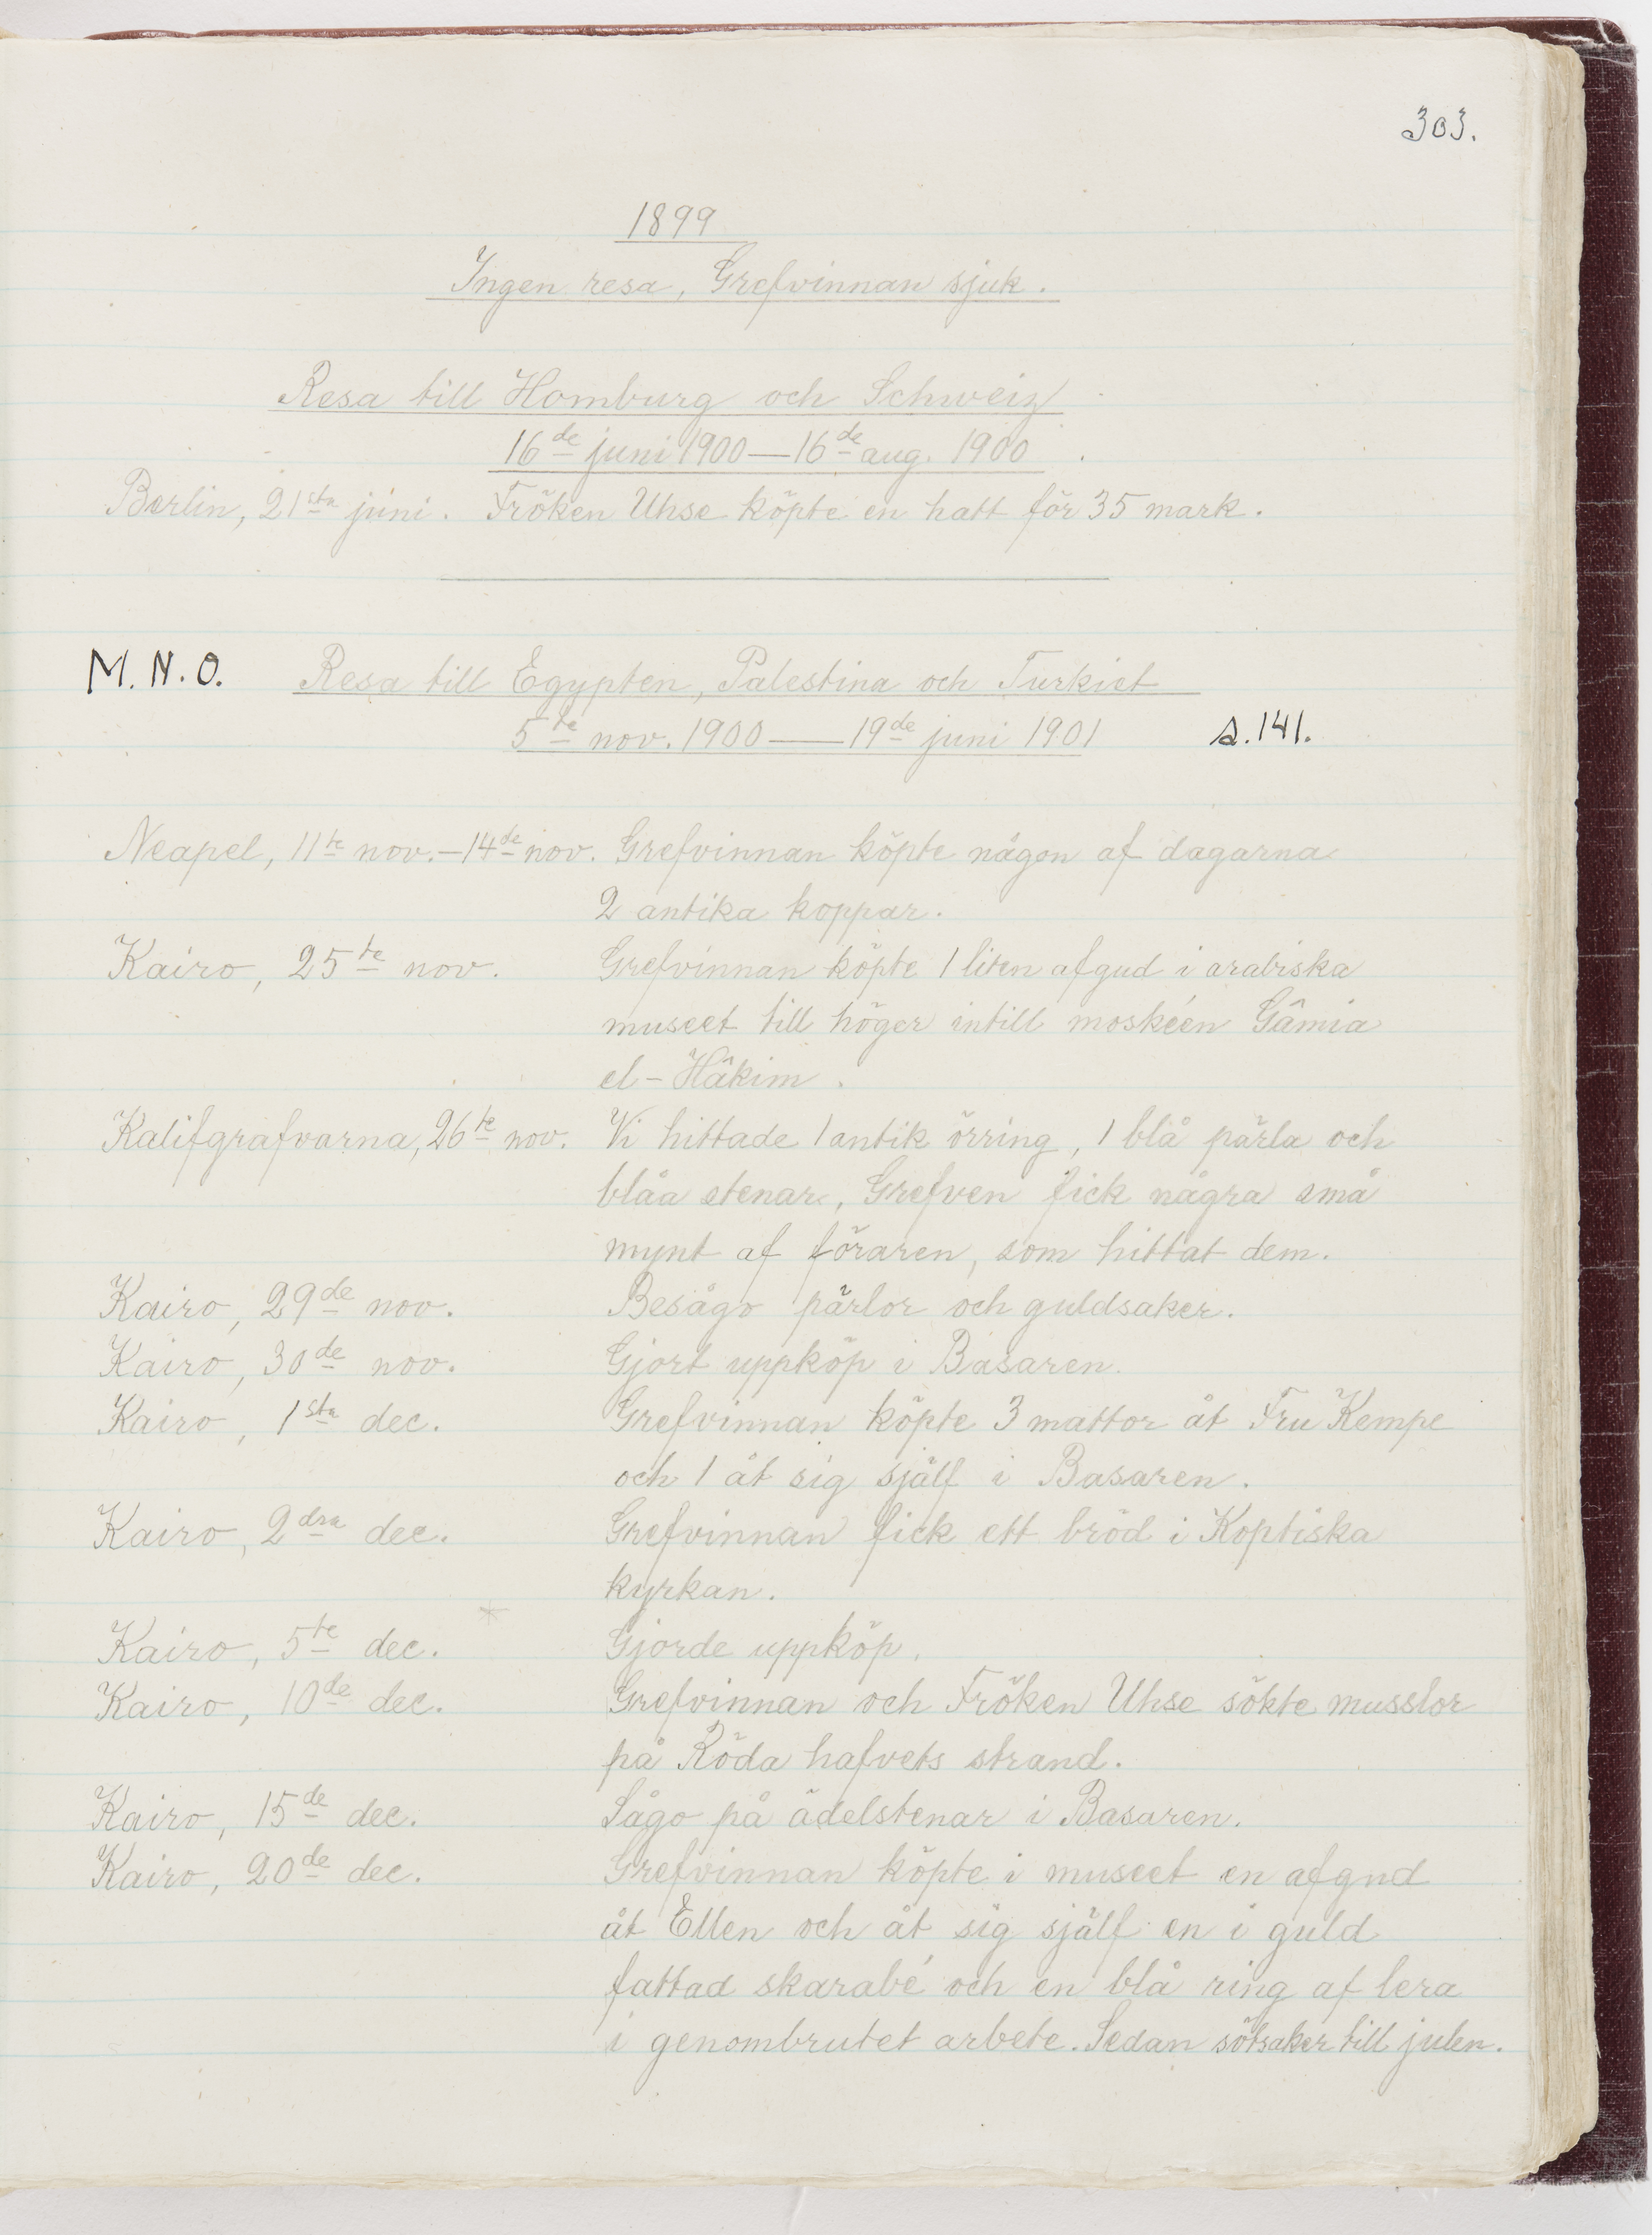 303.
1899
Ingen resa, Grefvinnan sjuk.
Resa till Homburg och Schweiz
16de juni 1900—16de aug. 1900
Berlin, 21sta juni. Fröken Uhse köpte en hatt för 35 mark.
M.N.O. Resa till Egypten, Palestina och Turkiet
5te nov. 1900—19de juni 1901 s.141.
Neapel, 11te nov.—14de nov. Grefvinnan köpte någon af dagarna
2 antika koppar.
Kairo, 25te nov. Grefvinnan köpte 1 liten afgud i arabiska
museet till höger intill moskéen Gâmia
el-Hâkim.
Kalifgrafvarna, 26te nov. Vi hittade 1 antik örring, 1 blå pärla och
blåa stenar, Grefven fick några små
mynt af föraren, som hittat dem.
Kairo, 29de nov. Besågo pärlor och guldsaker.
Kairo, 30de nov. Gjort uppköp i Basaren.
Kairo, 1sta dec. Grefvinnan köpte 3 mattor åt Fru Kempe
och 1 åt sig själf i Basaren.
Kairo, 2dra dec. Grefvinnan fick ett bröd i Koptiska
kyrkan.
Kairo, 5te dec. Gjorde uppköp.
Kairo, 10de dec. Grefvinnan och Fröken Uhse sökte musslor
på Röda hafvets strand.
Kairo, 15de dec. Sågo på ädelstenar i Basaren.
Kairo, 20de dec. Grefvinnan köpte i museet en afgud
åt Ellen och åt sig själf en i guld
fattad skarabé och en blå ring af lera
i genombrutet arbete. Sedan sötsaker till julen.